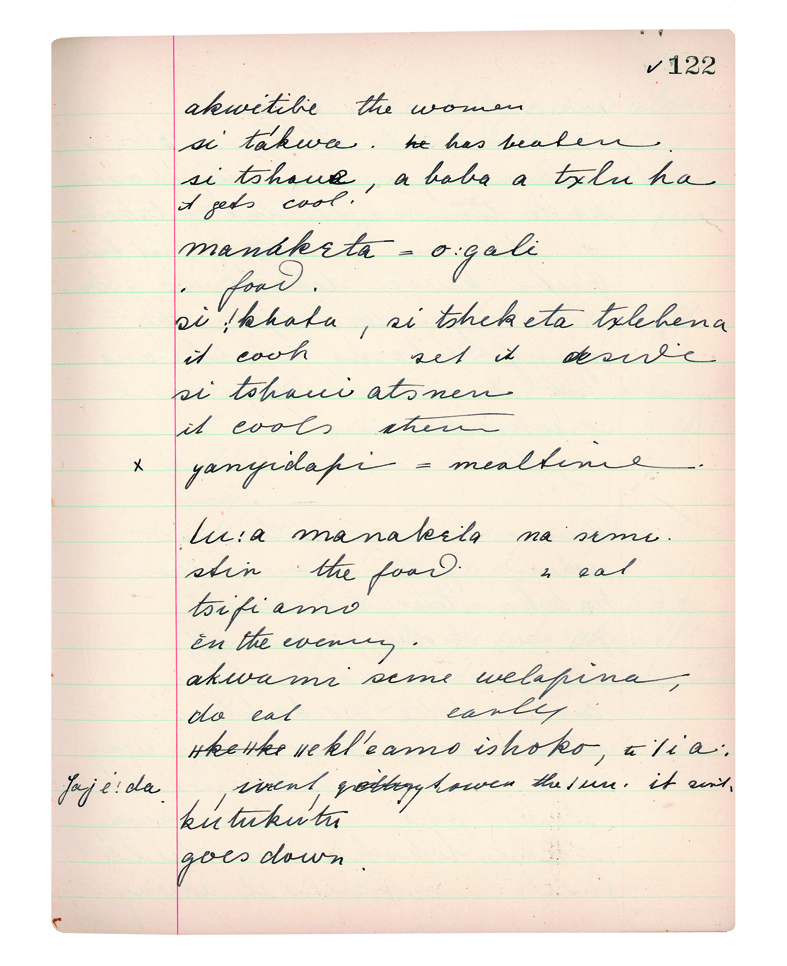 ✓ 122
akwétibe the women
si tákwa . he has beaten .
si tshaua , a baba a txlu ha
it gets cool.
manákɛta = o:gali
. food .
si !khata , si tsheketa txlebena
it cook set it aside
si tshaui atsnen
it cools them
x yanyidapi = mealtime .
lu:a manakɛta na seme .
stir the food & eat
tsifiamo
in the evening .
akwami seme welapina ,
do eal early
ǁke ǁke ǁekl'eamo ishoko , i a :
went, lower the sun. it
kútukútu
goes down .